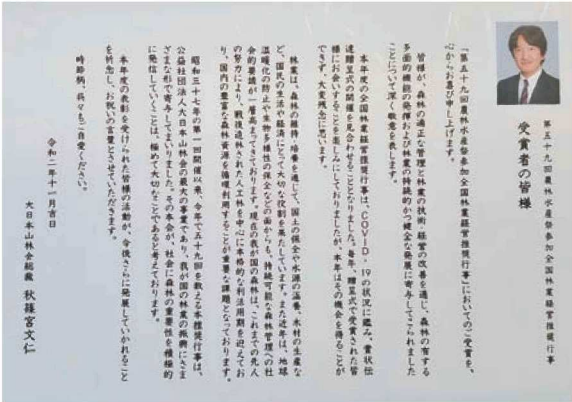 第五十九回農林水産祭参加全国林業経営推奨行事
受賞者の皆様
「第五十九回農林水産祭参加全国林業経営推奨行事」においてのご受賞を、
心からお喜び申し上げます。
皆様が、森林の適正な管理と林業の技術・経営の改善を通じ、森林の有する
多面的機能の発揮および林業の持続的かつ健全な発展に寄与してこられました
ことについて深く敬意を表します。
本年度の全国林業経営推奨行事は、COVID-19の状況に鑑み、賞状伝
達贈呈式の開催を見合わせることとなりました。毎年、贈呈式で受賞された皆
様にお会いすることを楽しみにしておりましたが、本年はその機会を得ることが
できず、大変残念に思います。
林業は、森林の維持・培養を通じて、国土の保全や水源の涵養、木材の生産な
ど、国民の生活や経済にとって大切な役割を果たしています。また近年は、地球
温暖化の防止や生物多様性の保全などの面からも、持続可能な森林管理への社
会的要請が一層高まってきております。現在の我が国の森林は、これまでの先人
の努力により、戦後造林された人工林を中心に本格的な利活用期を迎えてお
り、国内の豊富な森林資源を循環利用することが重要な課題となっております。
昭和三十七年の第一回開催以来、今年で五十九回を数える本推奨行事は、
公益社団法人大日本山林会の最大の事業であり、我が国の林業の振興にさま
ざまな形で寄与してまいりました。その本会が、社会に森林の重要性を積極的
に発信していくことは、極めて大切なことであると考えております。
本年度の表彰を受けられた皆様の活動が、今後さらに発展していかれること
を祈念し、お祝いの言葉とさせていただきます。
時節柄、呉々もご自愛ください。
令和二年十一月吉日
大日本山林会総裁 秋篠宮文仁